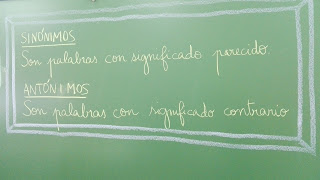 SINÓNIMOS
Son palabras con significado parecido.
ANTÓNIMOS
Son palabras con significado contrario